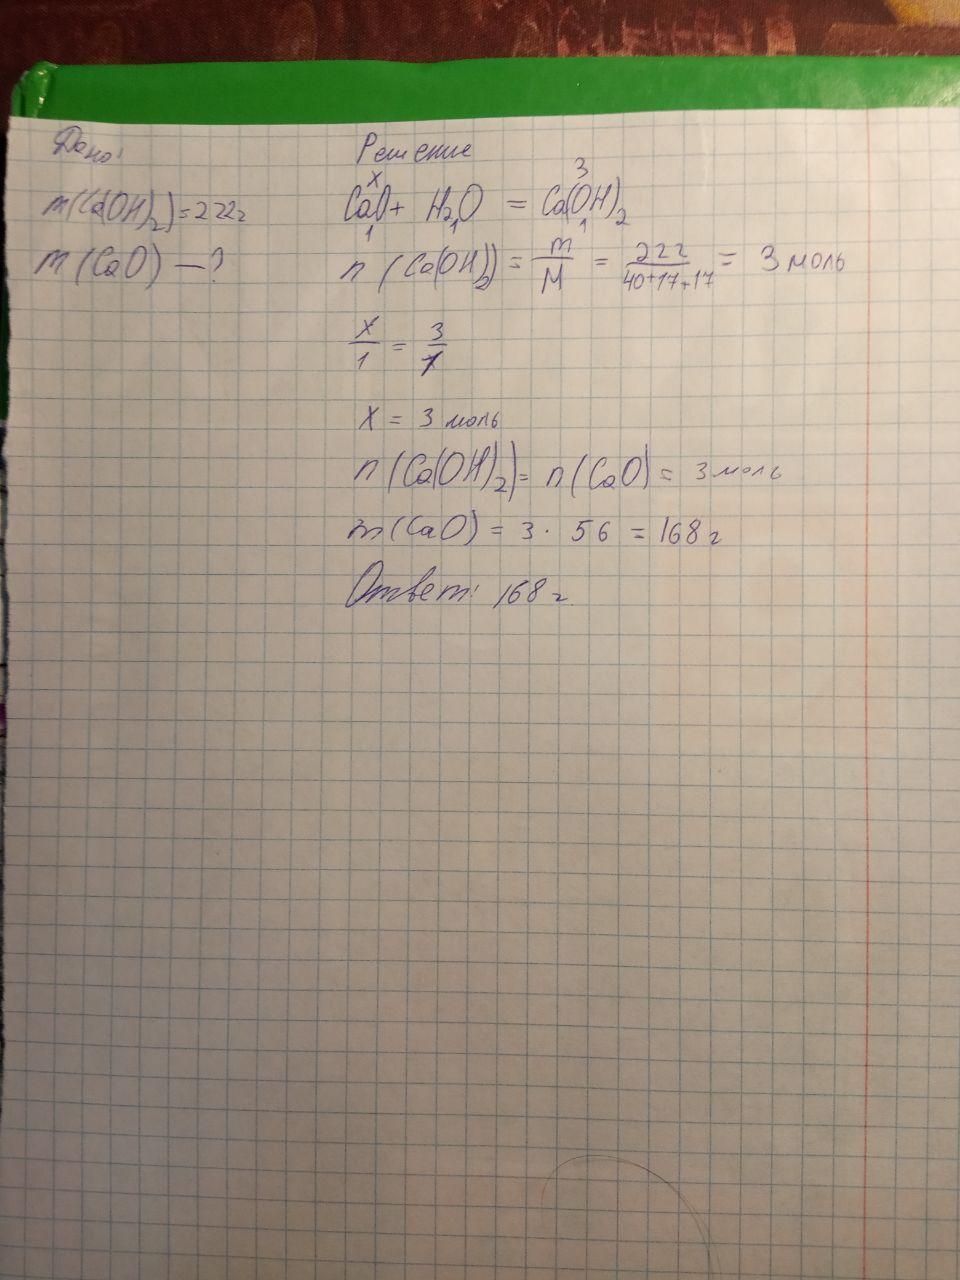 Дано:
m(Ca(OH)₂)=222г
m(CaO) — ?
Решение
x 3
CaO + H₂O = Ca(OH)₂
1 1 1
n (Ca(OH)₂) = m/M = 222/(40+17+17) = 3 моль
x/1 = 3/1
x = 3 моль
n(Ca(OH)₂) = n(CaO) = 3 моль
m(CaO) = 3 · 56 = 168 г
Ответ: 168 г.